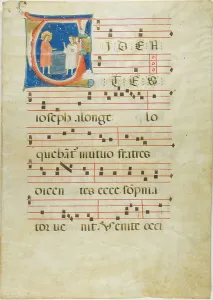 VIDEN
TES
ioseph alonge lo
quebanť mutuo fratres
dicen tes ecce sompnia
tor ue nit. Venite occi